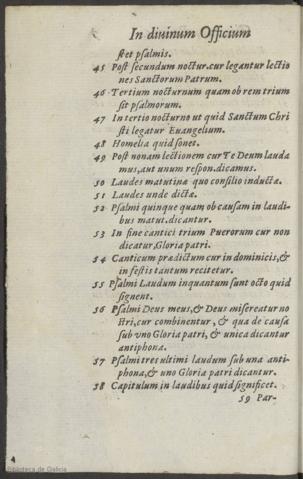 In diuinum Officium
sit et psalmis.
45 Post secundum noctur.cur legantur lectio
nes Sanctorum Patrum.
46 Tertium nocturnum quam ob rem trium
sit psalmorum.
47 In tertio nocturno ut quid Sanctum Chri
sti legatur Euangelium.
48 Homelia quid sonet.
49 Post nonam lectionem cur Te Deum lauda
mus, aut unum respon.dicamus.
50 Laudes matutinæ quo consilio inductæ.
51 Laudes unde dictæ.
52 Psalmi quinque quam ob causam in laudi-
bus matut.dicantur.
53 In fine cantici trium Puerorum cur non
dicatur, Gloria patri.
54 Canticum prædictum cur in dominicis, &
in festis tantum recitetur.
55 Psalmi Laudum inquantum sunt octo quid
signent.
56 Psalmi Deus meus, & Deus misereatur no
stri, cur combinentur, & qua de causa
sub vno Gloria patri, & unica dicantur
antiphona.
57 Psalmi tres ultimi laudum sub una anti-
phona, & uno Gloria patri dicantur.
58 Capitulum in laudibus quid significet.
59 Par-
4
Biblioteca de Galicia